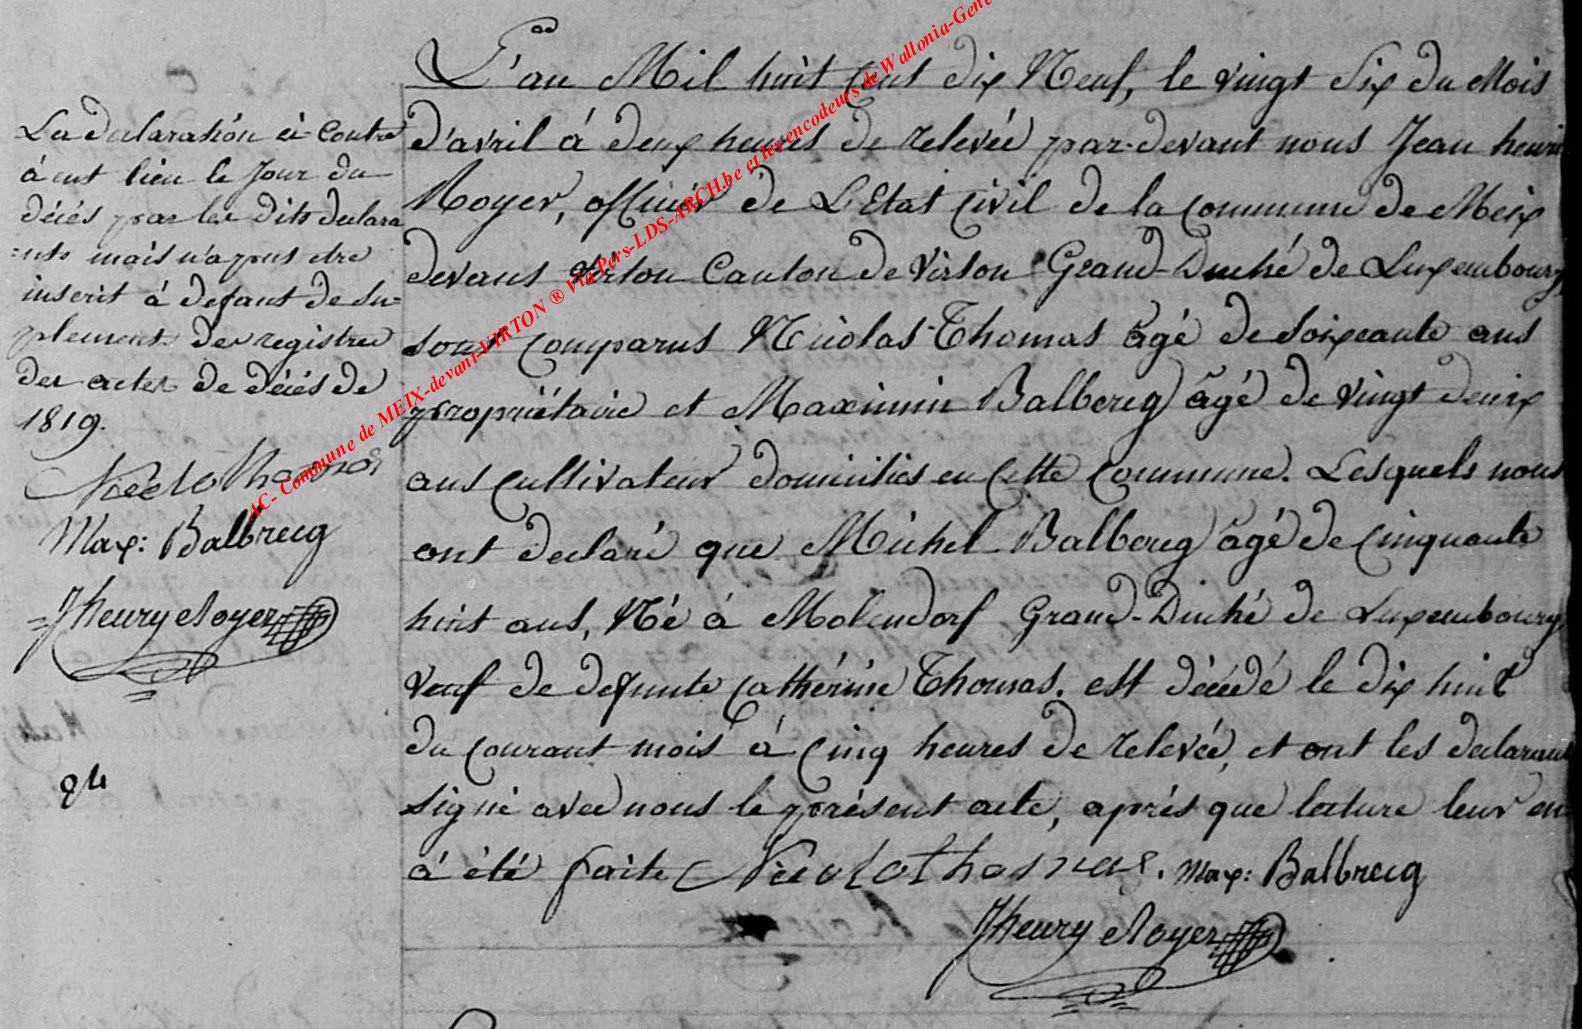 L'an Mil huit cent dix Neuf, le vingt Six du Mois
d'avril à deux heures de relevée par-devant nous Jean henri
Noyer, officier de L'Etat civil de la commune de Meix
devant Virton Canton de Virton Grand-Duché de Luxembourg,
sont comparus Nicolas Thomas âgé de Soixante ans
propriétaire et Maximin Balbereg âgé de vingt deux
ans cultivateur domiciliés en cette commune. Lesquels nous
ont declaré que Michel Balbereg âgé de cinquante
huit ans, Né à Molendorf Grand-Duché de Luxembourg,
veuf de defunte cathérine Thomas. est décédé le dix huit
du courant mois à cinq heures de relevée, et ont les declarants
signé avec nous le présent acte, aprés que lecture leur en
à été faite Nicolas Thomas. Max: Balbrecq
JHenry Noyer
La declaration ci Contre
à eut lieu le Jour du
décés par les dits declara
=nts mais n'a pus etre
inscrit à defaut de Su=
plement des registres
des actes de décés de
1819.
Nicolas Thomas
Max: Balbrecq
JHenry Noyer
AC- Commune de MEIX-devant-VIRTON ® Via Pers-LDS-ARCH.be et les encodeurs de Wallonia-Gene